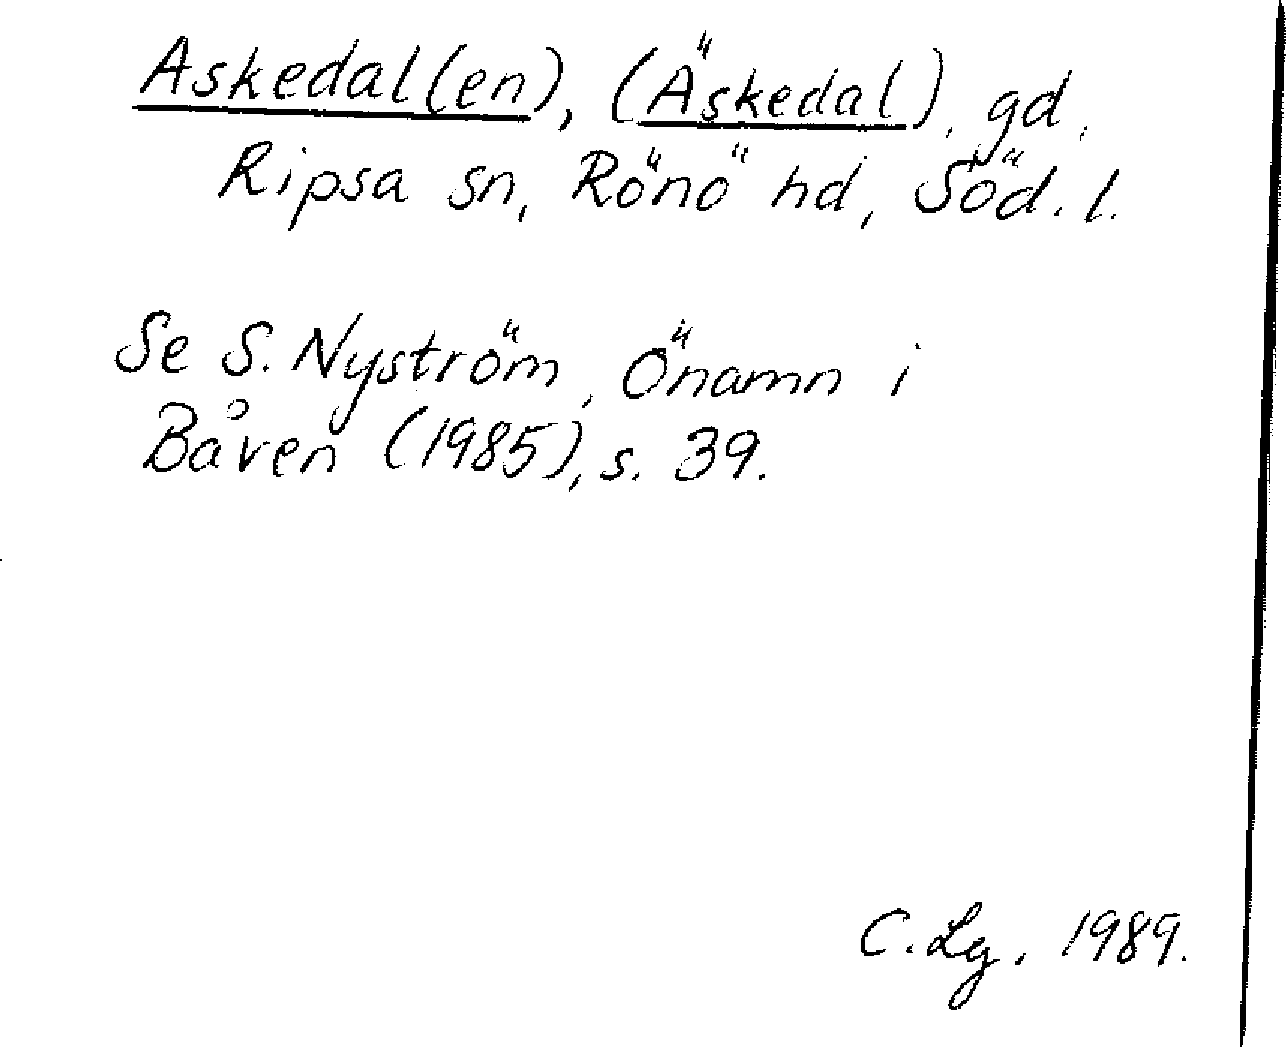 Askedal(en), (Äskedal), gd,
Ripsa sn, Rönö hd, Söd. l.
Se S. Nyström, Önamn i
Båven (1985), s. 39.
C. Lg, 1989.